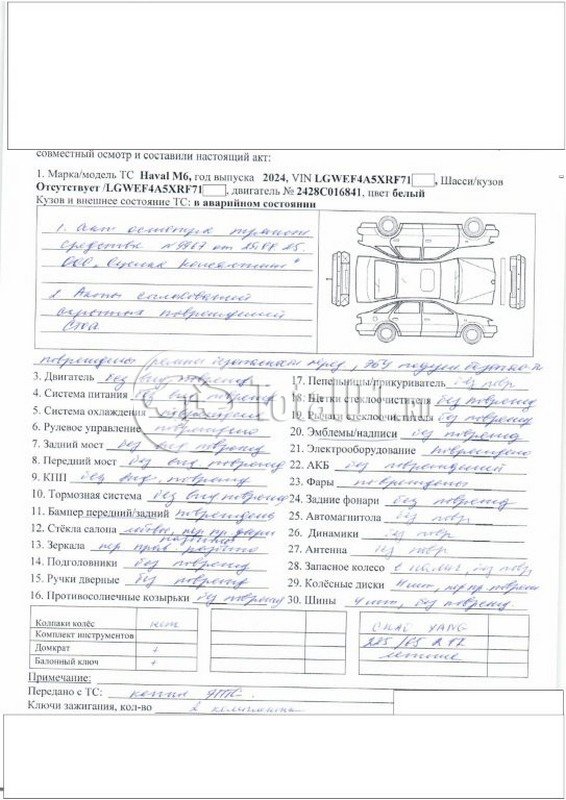 совместный осмотр и составили настоящий акт:
1. Марка/модель ТС Haval M6, год выпуска 2024, VIN LGWEF4A5XRF71, Шасси/кузов
Отсутствует /LGWEF4A5XRF71, двигатель № 2428C016841, цвет белый
Кузов и внешнее состояние ТС: в аварийном состоянии
1. Акт осмотра трансп.
средства
ООО
2. Акты
скрытых повреждений
СТОА
повреждены ремни безопасности перед, ЭБУ подушек безопас-ти
3. Двигатель без вид поврежд
4. Система питания без вид поврежд
5. Система охлаждения
6. Рулевое управление повреждено
7. Задний мост без вид поврежд
8. Передний мост без вид поврежд
9. КПП без вид. поврежд
10. Тормозная система без вид поврежд
11. Бампер передний/задний повреждены
12. Стёкла салона
13. Зеркала пер прав разбито
14. Подголовники без поврежд
15. Ручки дверные без поврежд
16. Противосолнечные козырьки без поврежд
17. Пепельницы/прикуриватель без повр
18. Щетки стеклоочистителя без поврежд
19. Рычаги стеклоочистителя без поврежд
20. Эмблемы/надписи без повр
21. Электрооборудование повреждено
22. АКБ без повреждений
23. Фары повреждены
24. Задние фонари без поврежд
25. Автомагнитола без повр
26. Динамики без повр
27. Антенна без повр
28. Запасное колесо в налич, без повр
29. Колёсные диски 4 шт, пер пр. поврежд
30. Шины 4 шт, без поврежд
Колпаки колёс нет
Комплект инструментов
Домкрат +
Балонный ключ +
CHAO YANG
225/65 R17
летние
Примечание:
Передано с ТС: копия ЭПТС
Ключи зажигания, кол-во 2 комплекта